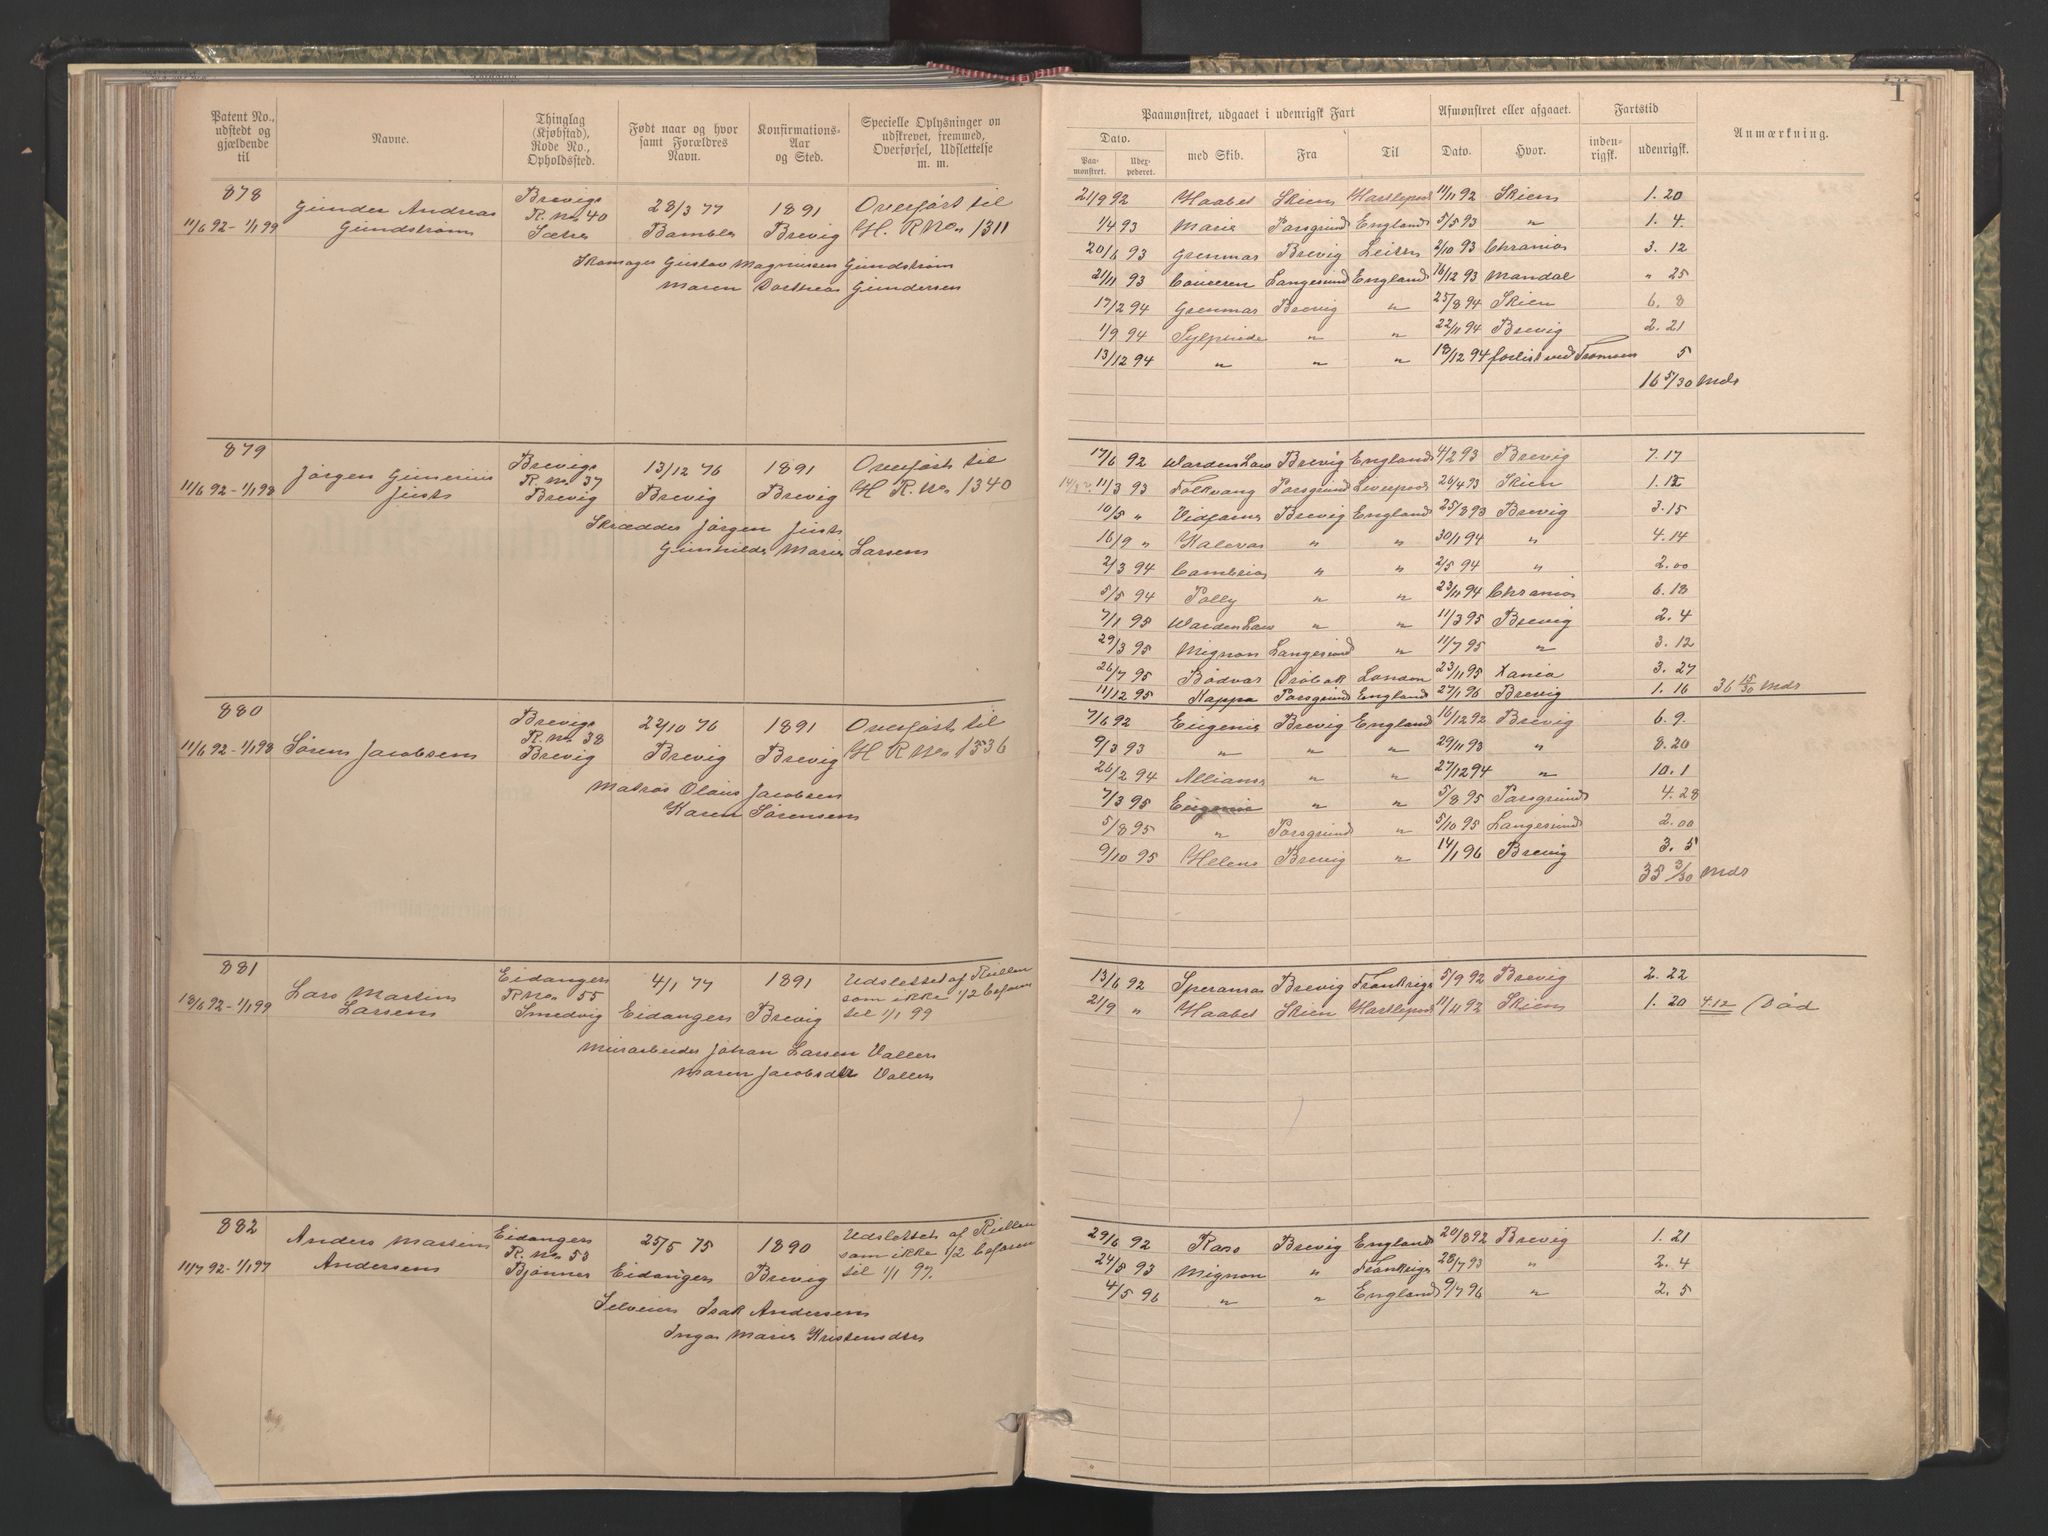 Patent No., udstedt og gjældende til
Navne.
Thinglag (Kjøbstad), Rode No., Opholdssted.
Født naar og hvor samt Forældres Navn.
Konfirmations- Aar og Sted.
Specielle Oplysninger om udskrevet, fremmed, Overførsel, Udslettelse m. m.
Paamønstret, udgaaet i udenrigsk Fart
Afmønstret eller afgaaet.
Fartstid
Anmærkning.
Dato. med Skib. Fra Til Dato. Hvor. inden- rigsk. udenrigsk.
Paa- mønstret. Uder- pederet.
878
11/6 92 - 1/1 99
Gunder Andreas
Gundstrøm
Brevigs
R. No 40
28/3 77 Bamble
1891 Brevig
Overført til
H. R No 1311
Skomager Gustav Magnussen Gundstrøm
Maren Dorthea Gundersen
21/9 92 Haabet Skien Hartlepool 11/11 92 Skien 1. 20
1/4 93 Marie Porsgrund England 5/5 93 " 1. 4.
20/6 93 Grenmar Brevig Leith 2/10 93 Chrania 3. 12
21/11 93 Langesund England 16/12 93 Mandal " 25
17/2 94 Grenmar Brevig " 25/8 94 Skien 6. 8
1/9 94 " " 22/11 94 Brevig 2. 21
13/12 94 " " " 18/12 94 forlist ved 5
16 5/30 Mds
879
11/6 92 - 1/1 98
Jørgen Gunerius
Just
Brevigs
R. No 37
Brevig
13/12 76 Brevig
1891 Brevig
Overført til
H R. No 1340
Skrædder Jørgen Just
Gunhilde Marie Larsen
17/6 92 Warden Law Brevig England 4/2 93 Brevig 7. 17
11/3 93 Folkvang Porsgrund Liverpool 26/4 93 Skien
10/5 " Vidfarne Brevig England 25/8 93 Brevig 3. 15
16/9 " Kaleva " " 30/1 94 " 4. 14
2/3 94 Cambria " " 2/5 94 " 2. 00
5/5 94 Polly " " 23/11 94 Chrania 6. 18
7/1 95 Warden Law " " 11/3 95 Brevig 2. 4
29/3 95 Mignon Langesund " 11/7 95 " 3. 12
26/7 95 Bødvar Drøbak London 23/11 95 Xania 3. 27
11/12 95 Kappa Porsgrund England 27/1 96 Brevig 1. 16 36 15/30 Mds
880
11/6 92 - 1/1 98
Søren Jacobsen
Brevigs
R. No 38
Brevig
22/10 76 Brevig
1891 Brevig
Overført til
H R No 1336
Matros Olaus Jacobsen
Karen Sørensen
7/6 92 Eugenie Brevig England 16/12 92 Brevig 6. 9.
9/3 93 " " " 29/11 93 " 8. 20
26/2 94 Alliance " " 27/12 94 " 10. 1
7/3 95 Eugenie " " 5/8 95 Porsgrund 4. 28
5/8 95 " Porsgrund " 5/10 95 Langesund 2. 00
9/10 95 Helene Brevig " 14/1 96 Brevig 3. 5
35 3/30 Mds
881
13/6 92 - 1/1 99
Lars Martin
Larsen
Eidanger
R No 55
Smedvig
4/1 77 Eidanger
1891 Brevig
Udslettet af Rullen
som ikke 1/2 befaren
til 1/1 99
Murarbeider Johan Larsen Vallen
Maren Jacobsdtr Vallen
13/6 92 Speranza Brevig Frankrige 5/9 92 Brevig 2. 22
21/9 " Haabet Skien Hartlepool 11/11 92 Skien 1. 20 4.12 Død
882
11/7 92 - 1/1 97
Anders Martin
Andersen
Eidanger
R. No 53
Bjønnes
25/5 75 Eidanger
1890 Brevig
Udslettet af Rullen
som ikke 1/2 befaren
til 1/1 97.
Selveier Isak Andersen
Inga Marie Kristensdtr
29/6 92 Brevig England 20/8 92 Brevig 1. 21
24/5 93 Mignon " Frankrige 28/7 93 " 2. 4
4/5 96 " " England 9/7 96 " 2. 5